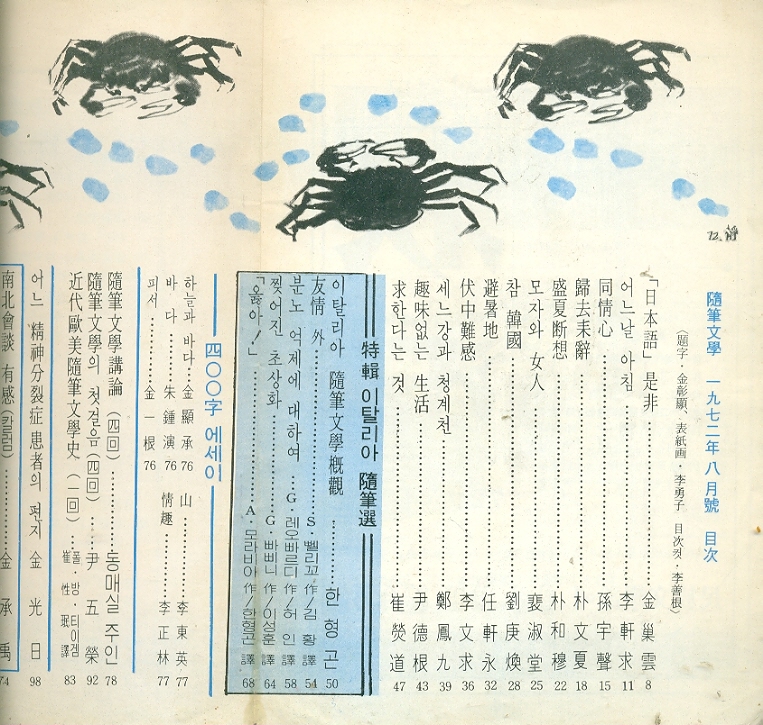 隨筆文學 一九七二年八月號 目次
〈題字·金彰顯、表紙画·李勇子 目次컷·李善根〉
「日本語」是非 金巢雲 8
어느날 아침 李軒求 11
同情心 孫宇聲 15
歸去耒辭 朴文夏 18
盛夏断想 朴和穆 22
모자와 女人 裴淑堂 25
참 韓國 劉庚煥 28
避暑地 任軒永 32
伏中難感 李文求 36
세느강과 청계천 鄭鳳九 39
趣味없는 生活 尹德根 43
求한다는 것 崔熒道 47
特輯 이탈리아 隨筆選
이탈리아 隨筆文學概觀 한형곤 50
友情 外 S·벨리꼬 作/김황 譯 54
분노 억제에 대하여 G·레오빠르디 作/허인 譯 58
찢어진 초상화 G·빠삐니 作/이성훈 譯 64
「옳아!」 A·모라비아 作/한형곤 譯 68
四〇〇字 에세이
하늘과 바다 金顯承 76
山 李東英 77
바다 朱鍾演 76
情趣 李正林 77
피서 金一根 76
隨筆文學講論 (四回) 동매실 주인 78
隨筆文學의 첫걸음 (四回) 尹五榮 92
近代歐美隨筆文學史 (二回) 폴·방·티이겜 崔性珉 譯 83
어느 精神分裂症患者의 편지 金光日 98
南北會談 有感 (칼럼) 金承禹 74
72.